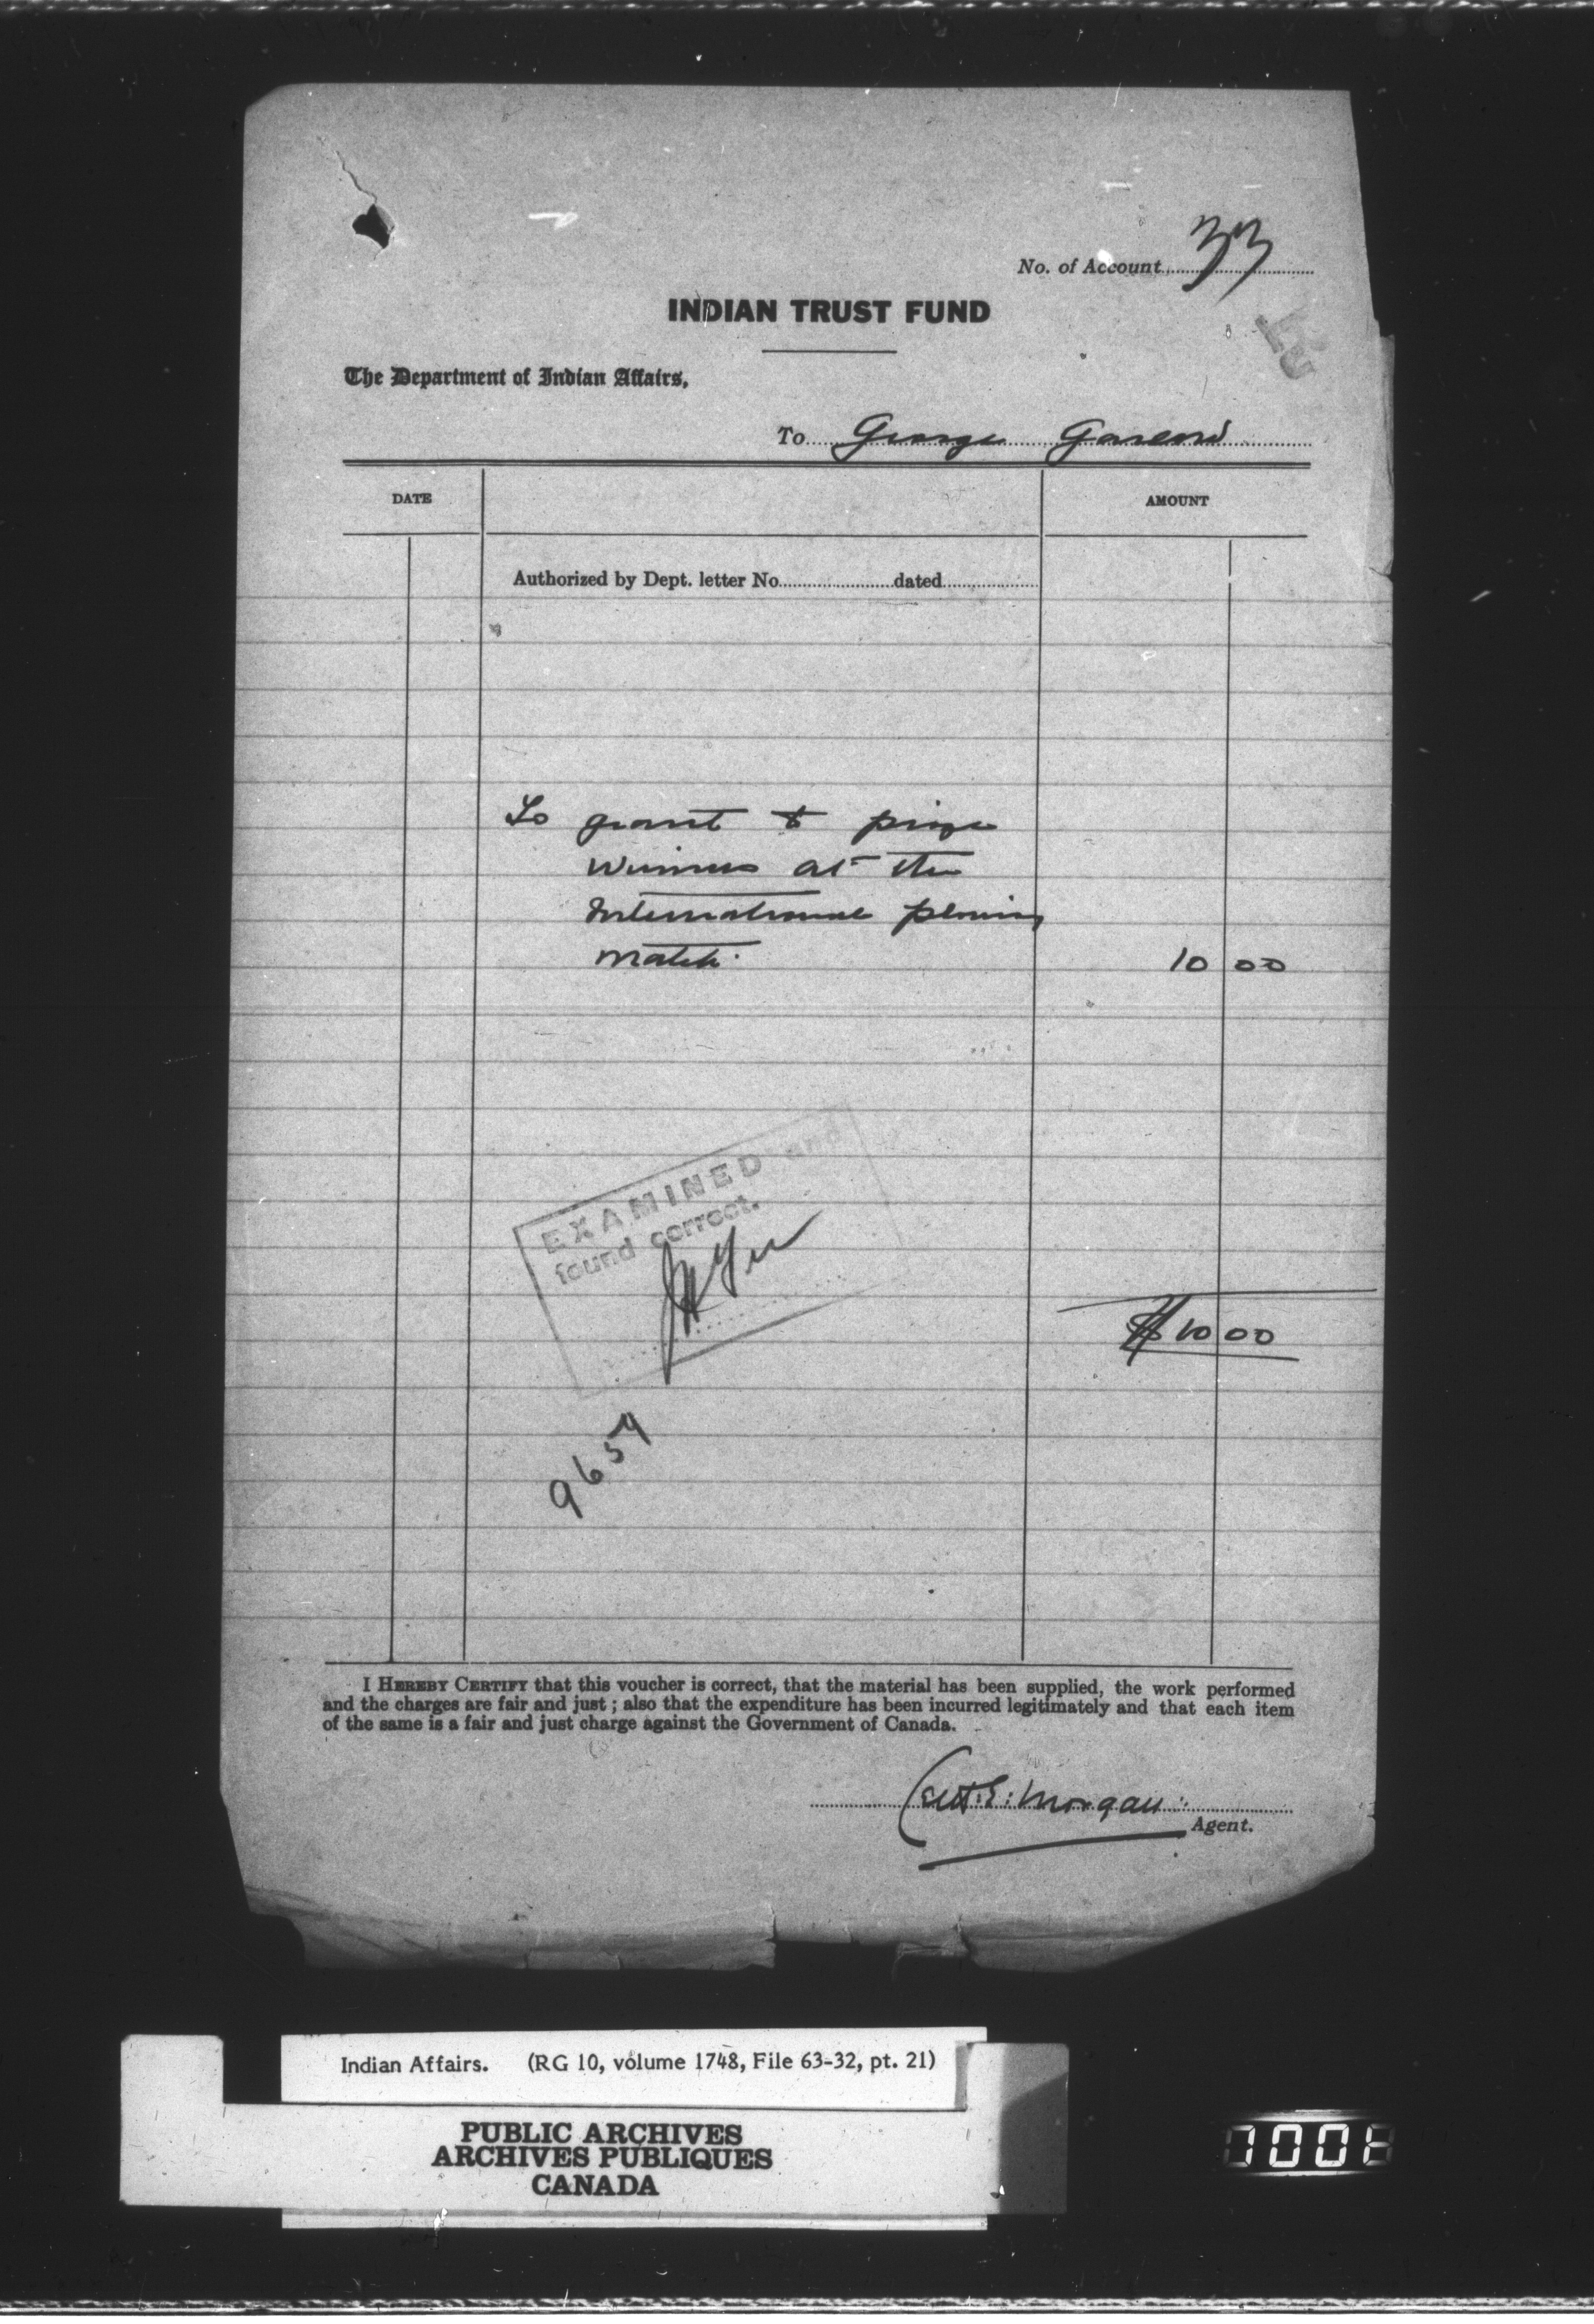 No. of Account 33
INDIAN TRUST FUND
The Department of Indian Affairs,
To George Garlow
DATE
AMOUNT
Authorized by Dept. letter No. dated
To grant to prize
winners at the
International plowing
match. 10 00
EXAMINED and
found correct.
$10 00
9659
I HEREBY CERTIFY that this voucher is correct, that the material has been supplied, the work performed
and the charges are fair and just; also that the expenditure has been incurred legitimately and that each item
of the same is a fair and just charge against the Government of Canada.
E. Morgan
Agent.
Indian Affairs. (RG 10, volume 1748, File 63-32, pt. 21)
PUBLIC ARCHIVES
ARCHIVES PUBLIQUES
CANADA